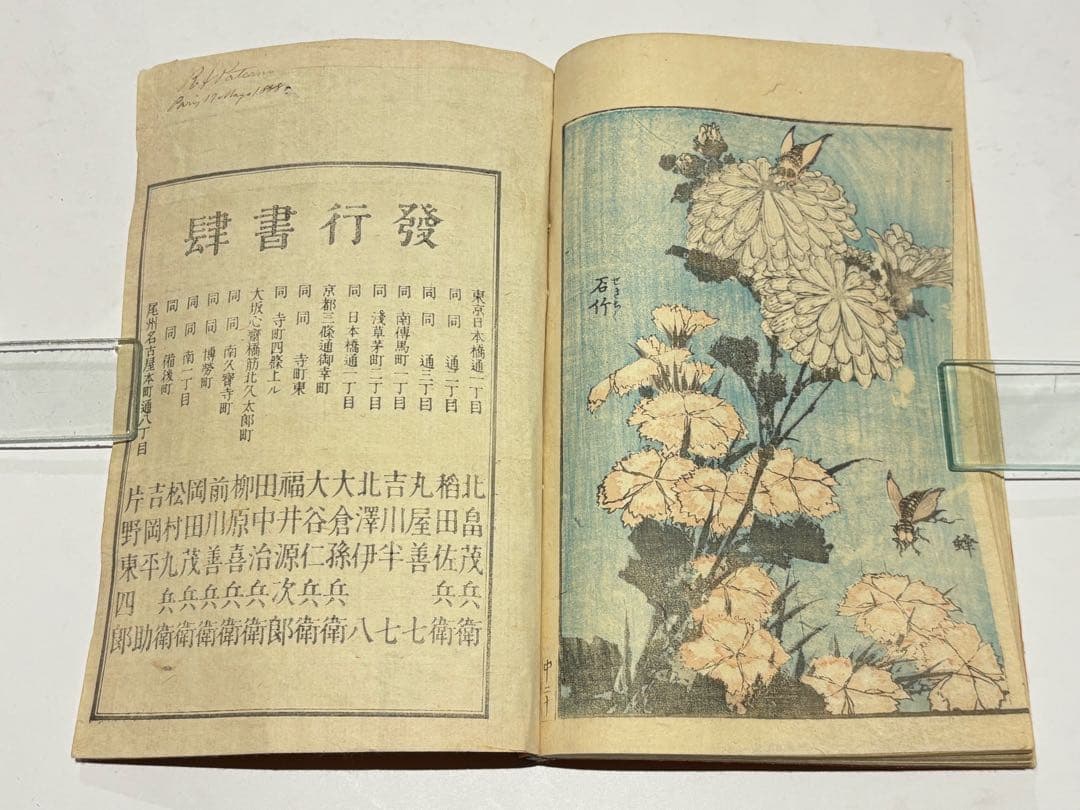 發行書肆
東京日本橋通一丁目 北畠茂兵衛
同 同 通二丁目 稻田佐兵衛
同 同 通三丁目 丸屋善七
同 南傳馬町一丁目 吉川半七
同 淺草茅町二丁目 北澤伊八
同 日本橋通一丁目 大倉孫兵衛
京都三條通御幸町 大谷仁兵衛
同 同 寺町東 福井源次郎
同 寺町四條上ル 田中治兵衛
大坂心齋橋筋北久太郎町 柳原喜兵衛
同 同 南久寶寺町 前川善兵衛
同 同 博勞町 岡田茂兵衛
同 同 南一丁目 松村九兵衛
同 同 備後町 吉岡平助
尾州名古屋本町通八丁目 片野東四郎
せきちく
石竹
蜂
中二十